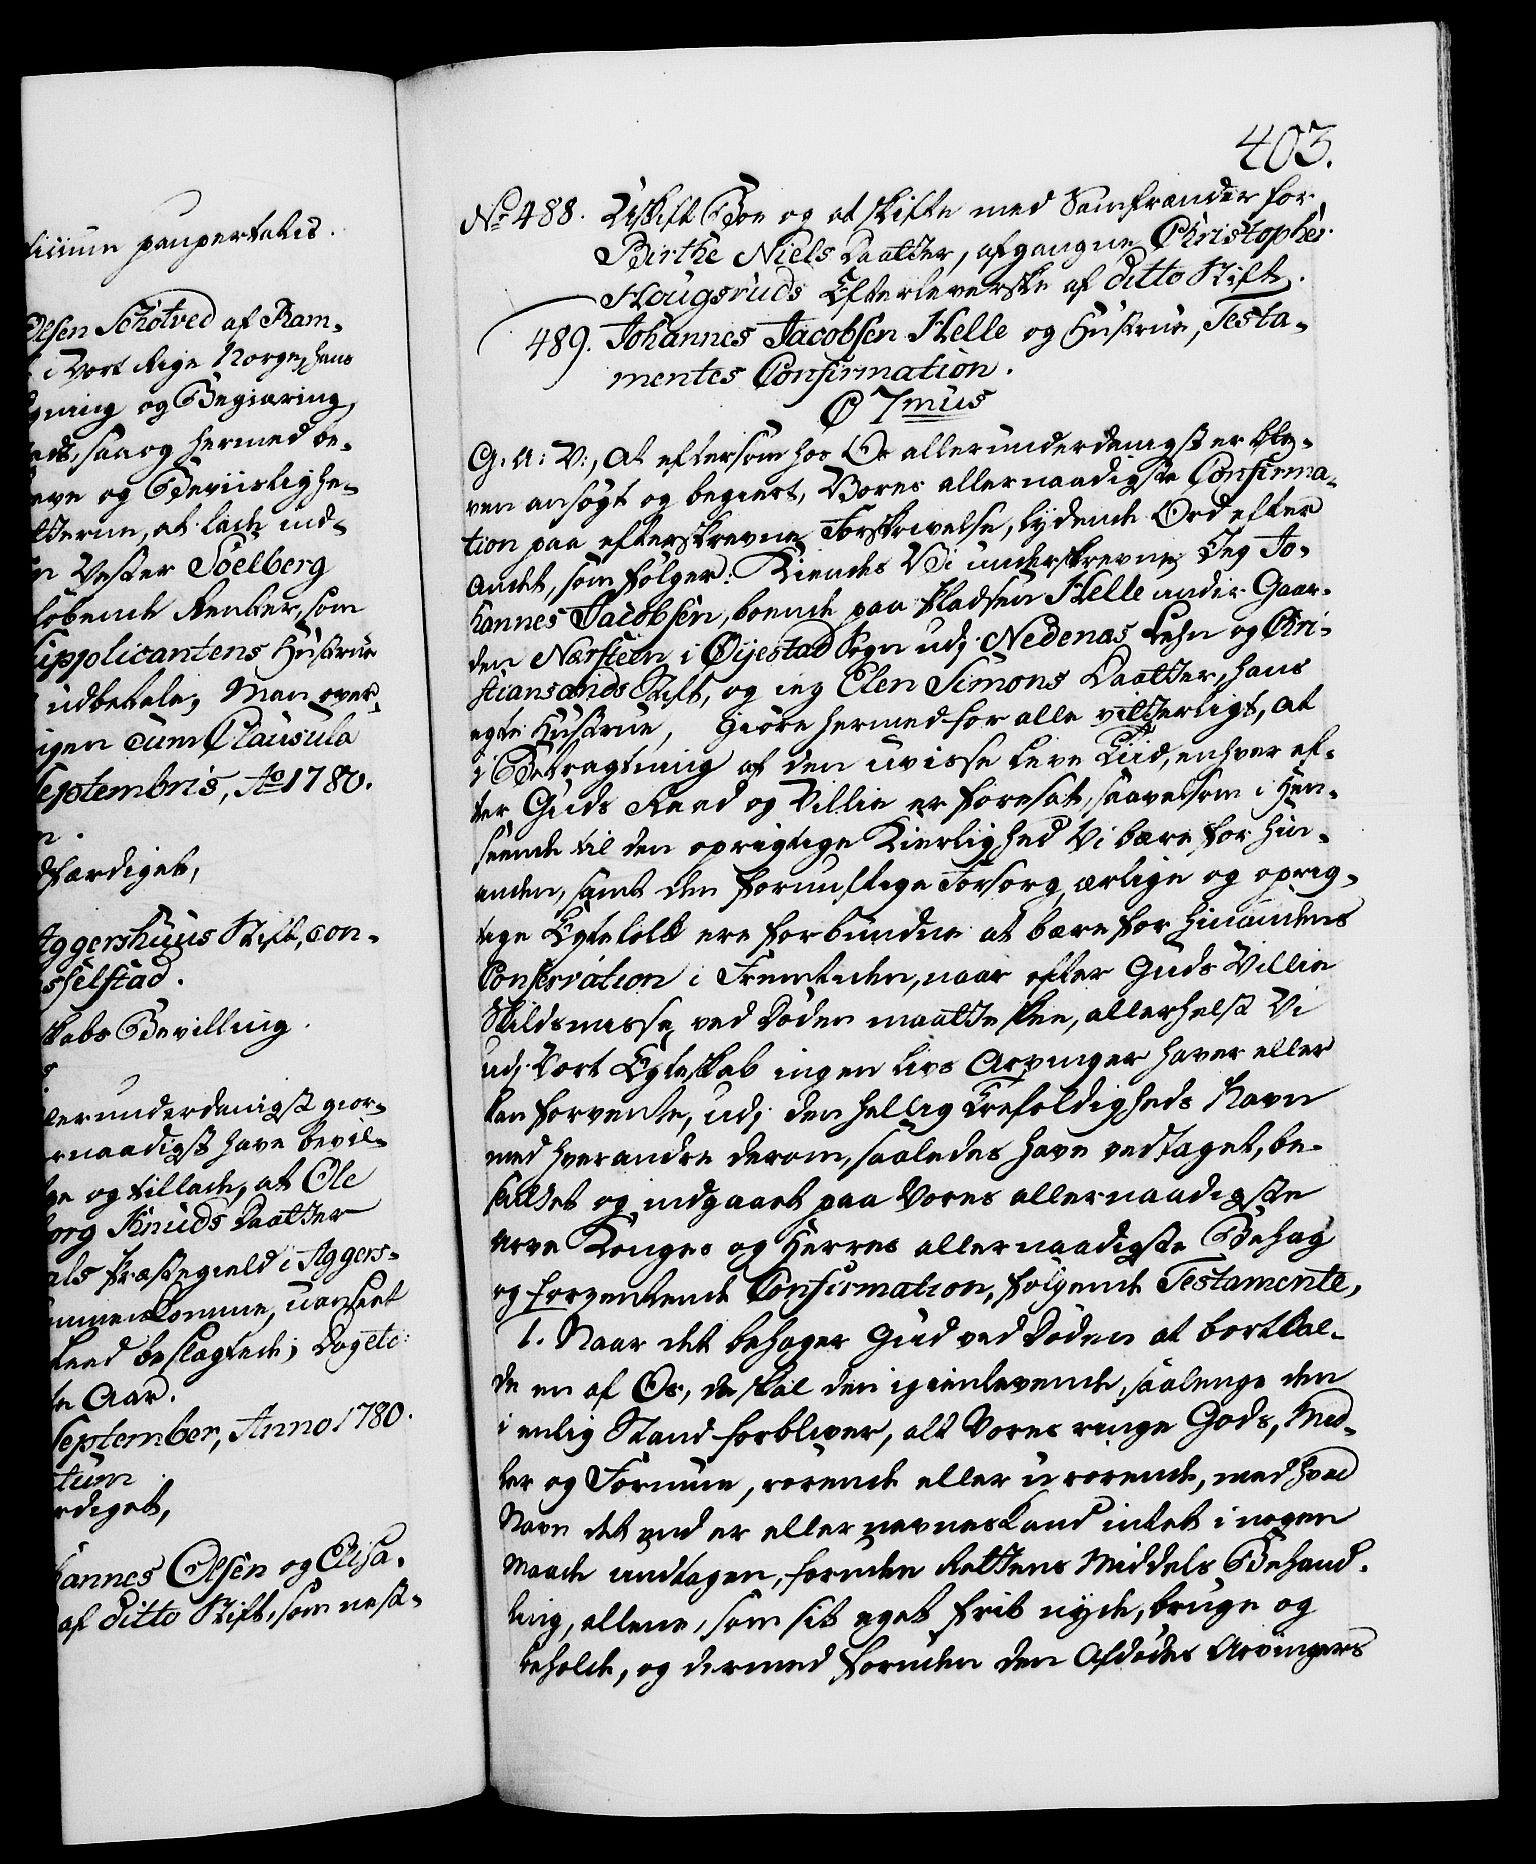 ficium paupertatis.
Olsen Schotved af Ram-
i Vort Rige Norge, hans
gning og Begiæring,
ladt, saa og hermed be-
eve og Beviislighe-
tterne, at lade ind-
Vester Soelberg
løbende Renter, som
Supplicantens Hustrue
udbetale; Men over,
igen cum Clausula
Septembris, Ao 1780.
dfærdiget,
Aggershuus Stift, con-
sselstad.
skabs Bevilling.
lerunderdanigst gior-
ernaadigst have bevil-
ge og tillade, at Ole
borg Knuds Daatter
als Præstegield i Aggers-
ammenkomme, uanseet
Leed beslægtede; Dog etc:
te Aar.
September, Anno 1780.
tum
rdiget,
hannes Olsen og Elisa-
af ditto Stift, som næst-
403.
No 488. Uskift Boe og at skifte med Samfrænder for
Birthe Niels Daatter, afgangne Christopher
Haugsruds Efterleverske af ditto Stift.
489. Johannes Jacobsen Helle og Hustrue, Testa-
mentes Confirmation.
C 7mus
G: A: V:, At eftersom hos Os allerunderdanigst er ble-
ven ansøgt og begiert, Vores allernaadigste Confirma-
tion paa efterskrevne Forskrivelse, lydende Ord efter
andet, som følger: Kiendes Vi underskrevne Jeg Jo-
hannes Jacobsen, boende paa Pladsen Helle under Gaar-
den Nærsteen i Øijestad Sogn udj Nedenæs Lehn og Chri-
stiansands Stift, og jeg Elen Simons Daatter, hans
egte Hustrue, Giøre hermed for alle vitterligt, at
i Betragtning af den uvisse Leve Tiid, enhver ef-
ter Guds Raad og Villie er foresat, saavelsom i Hen-
seende til den oprigtige Kierlighed Vi bære for hin-
anden, samt den fornuftige Forsorg, ærlige og oprig-
tige Egtefolk ere forbundne at bære for hinandens
Conservation i Fremtiden, naar efter Guds Villie
Skildsmisse ved Døden maatte skee, allerhelst Vi
udj Vort Egteskab ingen Livs Arvinger haver eller
kan forvente, udj den hellig Trefoldigheds Navn
med hverandre derom, saaledes have vedtaget, be-
sluttet og indgaaet paa Vores allernaadigste
Arve Konges og Herres allernaadigste Behag
og forventende Confirmation, følgende Testamente,
1. Naar det behager Gud ved Døden at bortkal-
de en af Os, da skal den igienlevende, saalenge den
i enlig Stand forbliver, alt Vores ringe Gods, Mid-
ler og Formue, rørende eller urørende, med hvad
Navn det end er eller nævnes kand intet i nogen
Maade undtagen, foruden Rettens Middels Behand-
ling, allene, som sit eget frit nyde, bruge og
beholde, og dermed foruden den Afdødes Arvingers